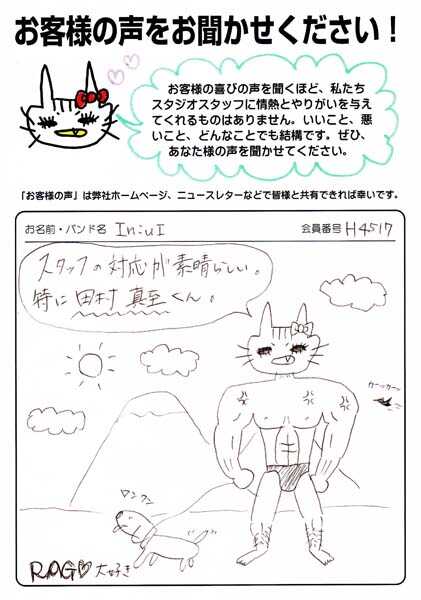 お客様の声をお聞かせください!
お客様の喜びの声を聞くほど、私たち
スタジオスタッフに情熱とやりがいを与え
てくれるものはありません。いいこと、悪
いこと、どんなことでも結構です。ぜひ、
あなた様の声を聞かせてください。
「お客様の声」は弊社ホームページ、ニュースレターなどで皆様と共有できれば幸いです。
お名前・バンド名
会員番号 H4517
スタッフの対応が素晴らしい。
特に田村真至くん。
カーッカーッ
ワンワン
RAG♡大好き